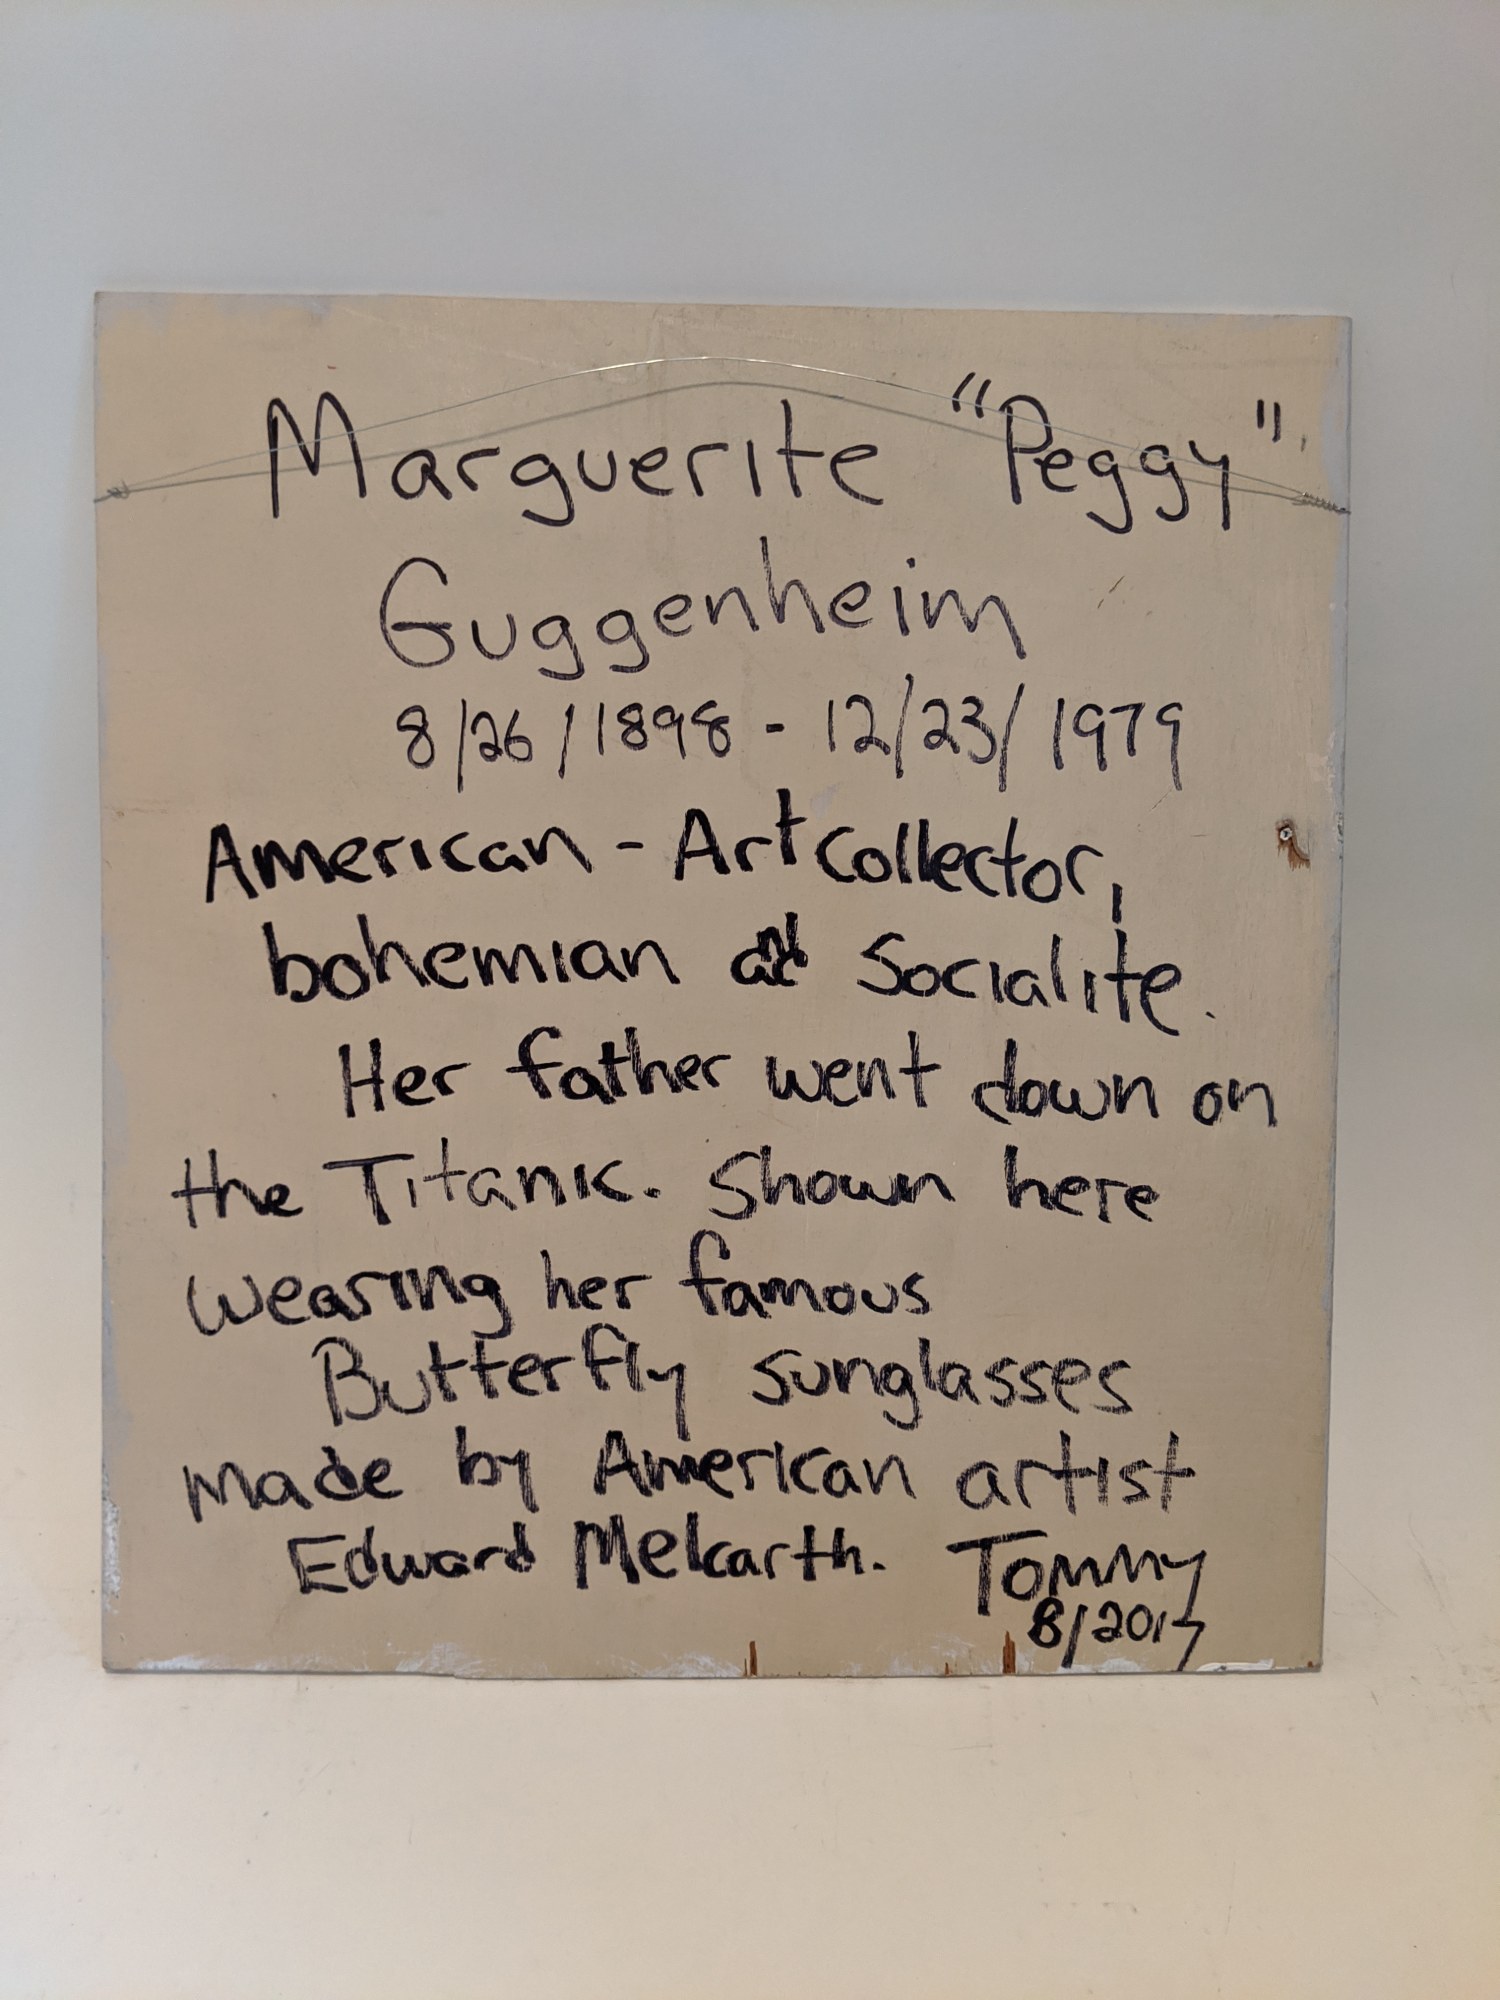 Marguerite "Peggy"
Guggenheim
8/26/1898 - 12/23/1979
American - Art collector,
bohemian and Socialite.
Her father went down on
the Titanic. Shown here
wearing her famous
Butterfly sunglasses
made by American artist
Edward Melcarth. Tommy
8/2017